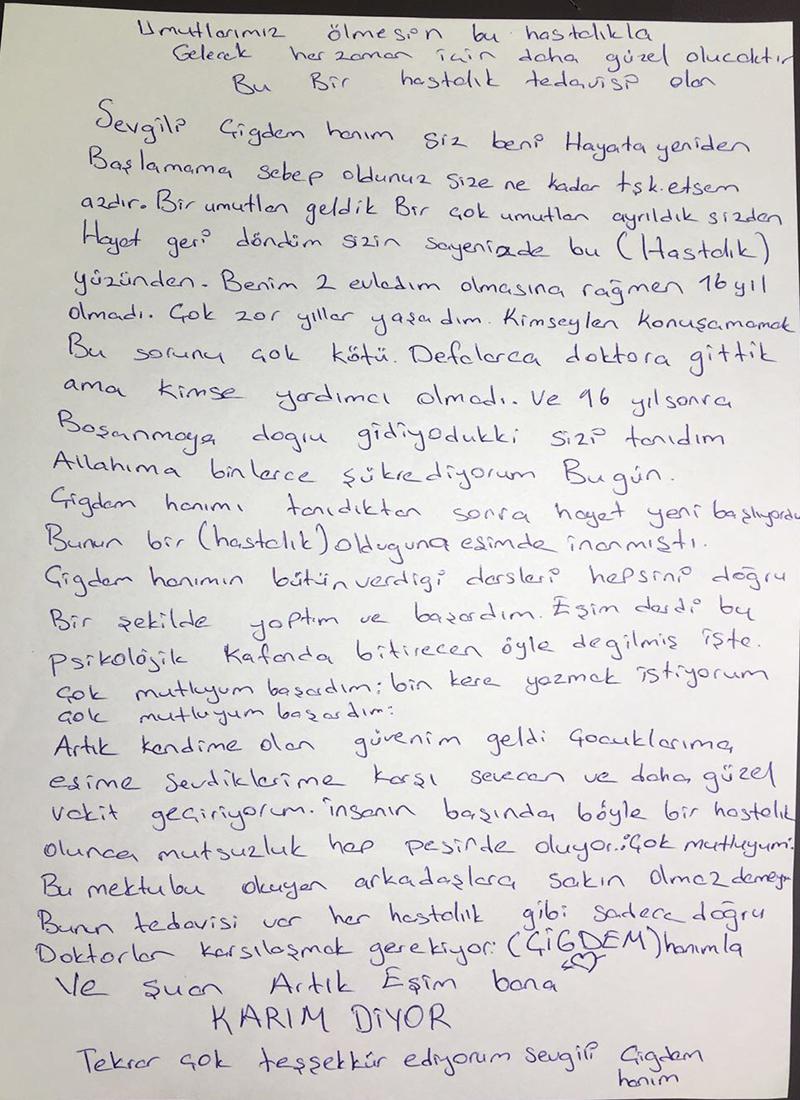 Umutlarımız ölmesin bu hastalıkla
Gelecek her zaman için daha güzel olucaktır
Bu Bir hastalık tedavisi olan
Sevgili Çigdem hanım siz beni Hayata yeniden
Başlamama sebep oldunuz size ne kadar tşk. etsem
azdır. Bir umutlan geldik Bir çok umutlan ayrıldık sizden
Hayat geri döndüm sizin sayenizde bu (Hastalık)
yüzünden. Benim 2 evladım olmasına rağmen 16 yıl
olmadı. Çok zor yıllar yaşadım. Kimseylen konuşamamak
Bu sorunu çok kötü. Defalarca doktora gittik
ama kimse yardımcı olmadı. Ve 16 yıl sonra
Boşanmaya dogru gidiyodukki sizi tanıdım
Allahıma binlerce şükrediyorum Bugün.
Çigdem hanımı tanıdıktan sonra hayat yeni başlıyordu
Bunun bir (hastalık) olduguna eşimde inanmıştı.
Çigdem hanımın bütün verdigi dersleri hepsini doğru
Bir şekilde yaptım ve başardım. Eşim derdi bu
psikolojik kafanda bitirecen öyle degilmiş işte.
Çok mutluyum başardım: bin kere yazmak istiyorum
çok mutluyum başardım:
Artık kendime olan güvenim geldi Çocuklarıma,
eşime sevdiklerime karşı sevecen ve daha güzel
vakit geçiriyorum. İnsanın başında böyle bir hastalık
olunca mutsuzluk hep peşinde oluyor.: Çok mutluyum:
Bu mektubu okuyan arkadaşlara sakın olmaz demeyin
Bunun tedavisi var her hastalık gibi sadece doğru
Doktorlan karşılaşmak gerekiyor: (ÇİGDEM) hanımla
Ve şuan Artık Eşim bana
KARIM DİYOR
Tekrar çok teşşekkür ediyorum sevgili Çigdem
hanım